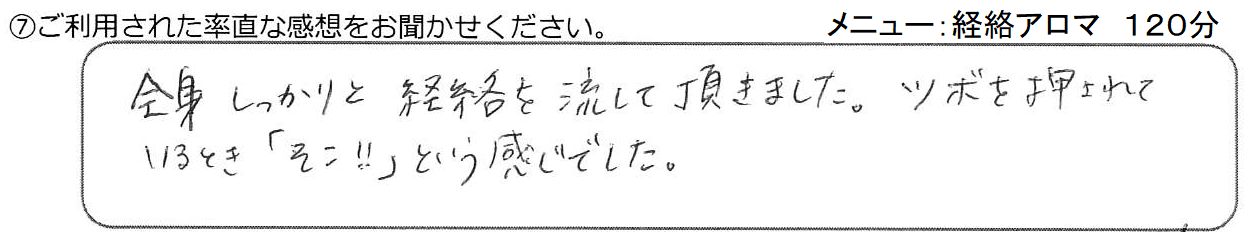 ⑦ご利用された率直な感想をお聞かせください。 メニュー：経絡アロマ　１２０分
全身しっかりと経絡を流して頂きました。ツボを押されて
いるとき「そこ!!」という感じでした。